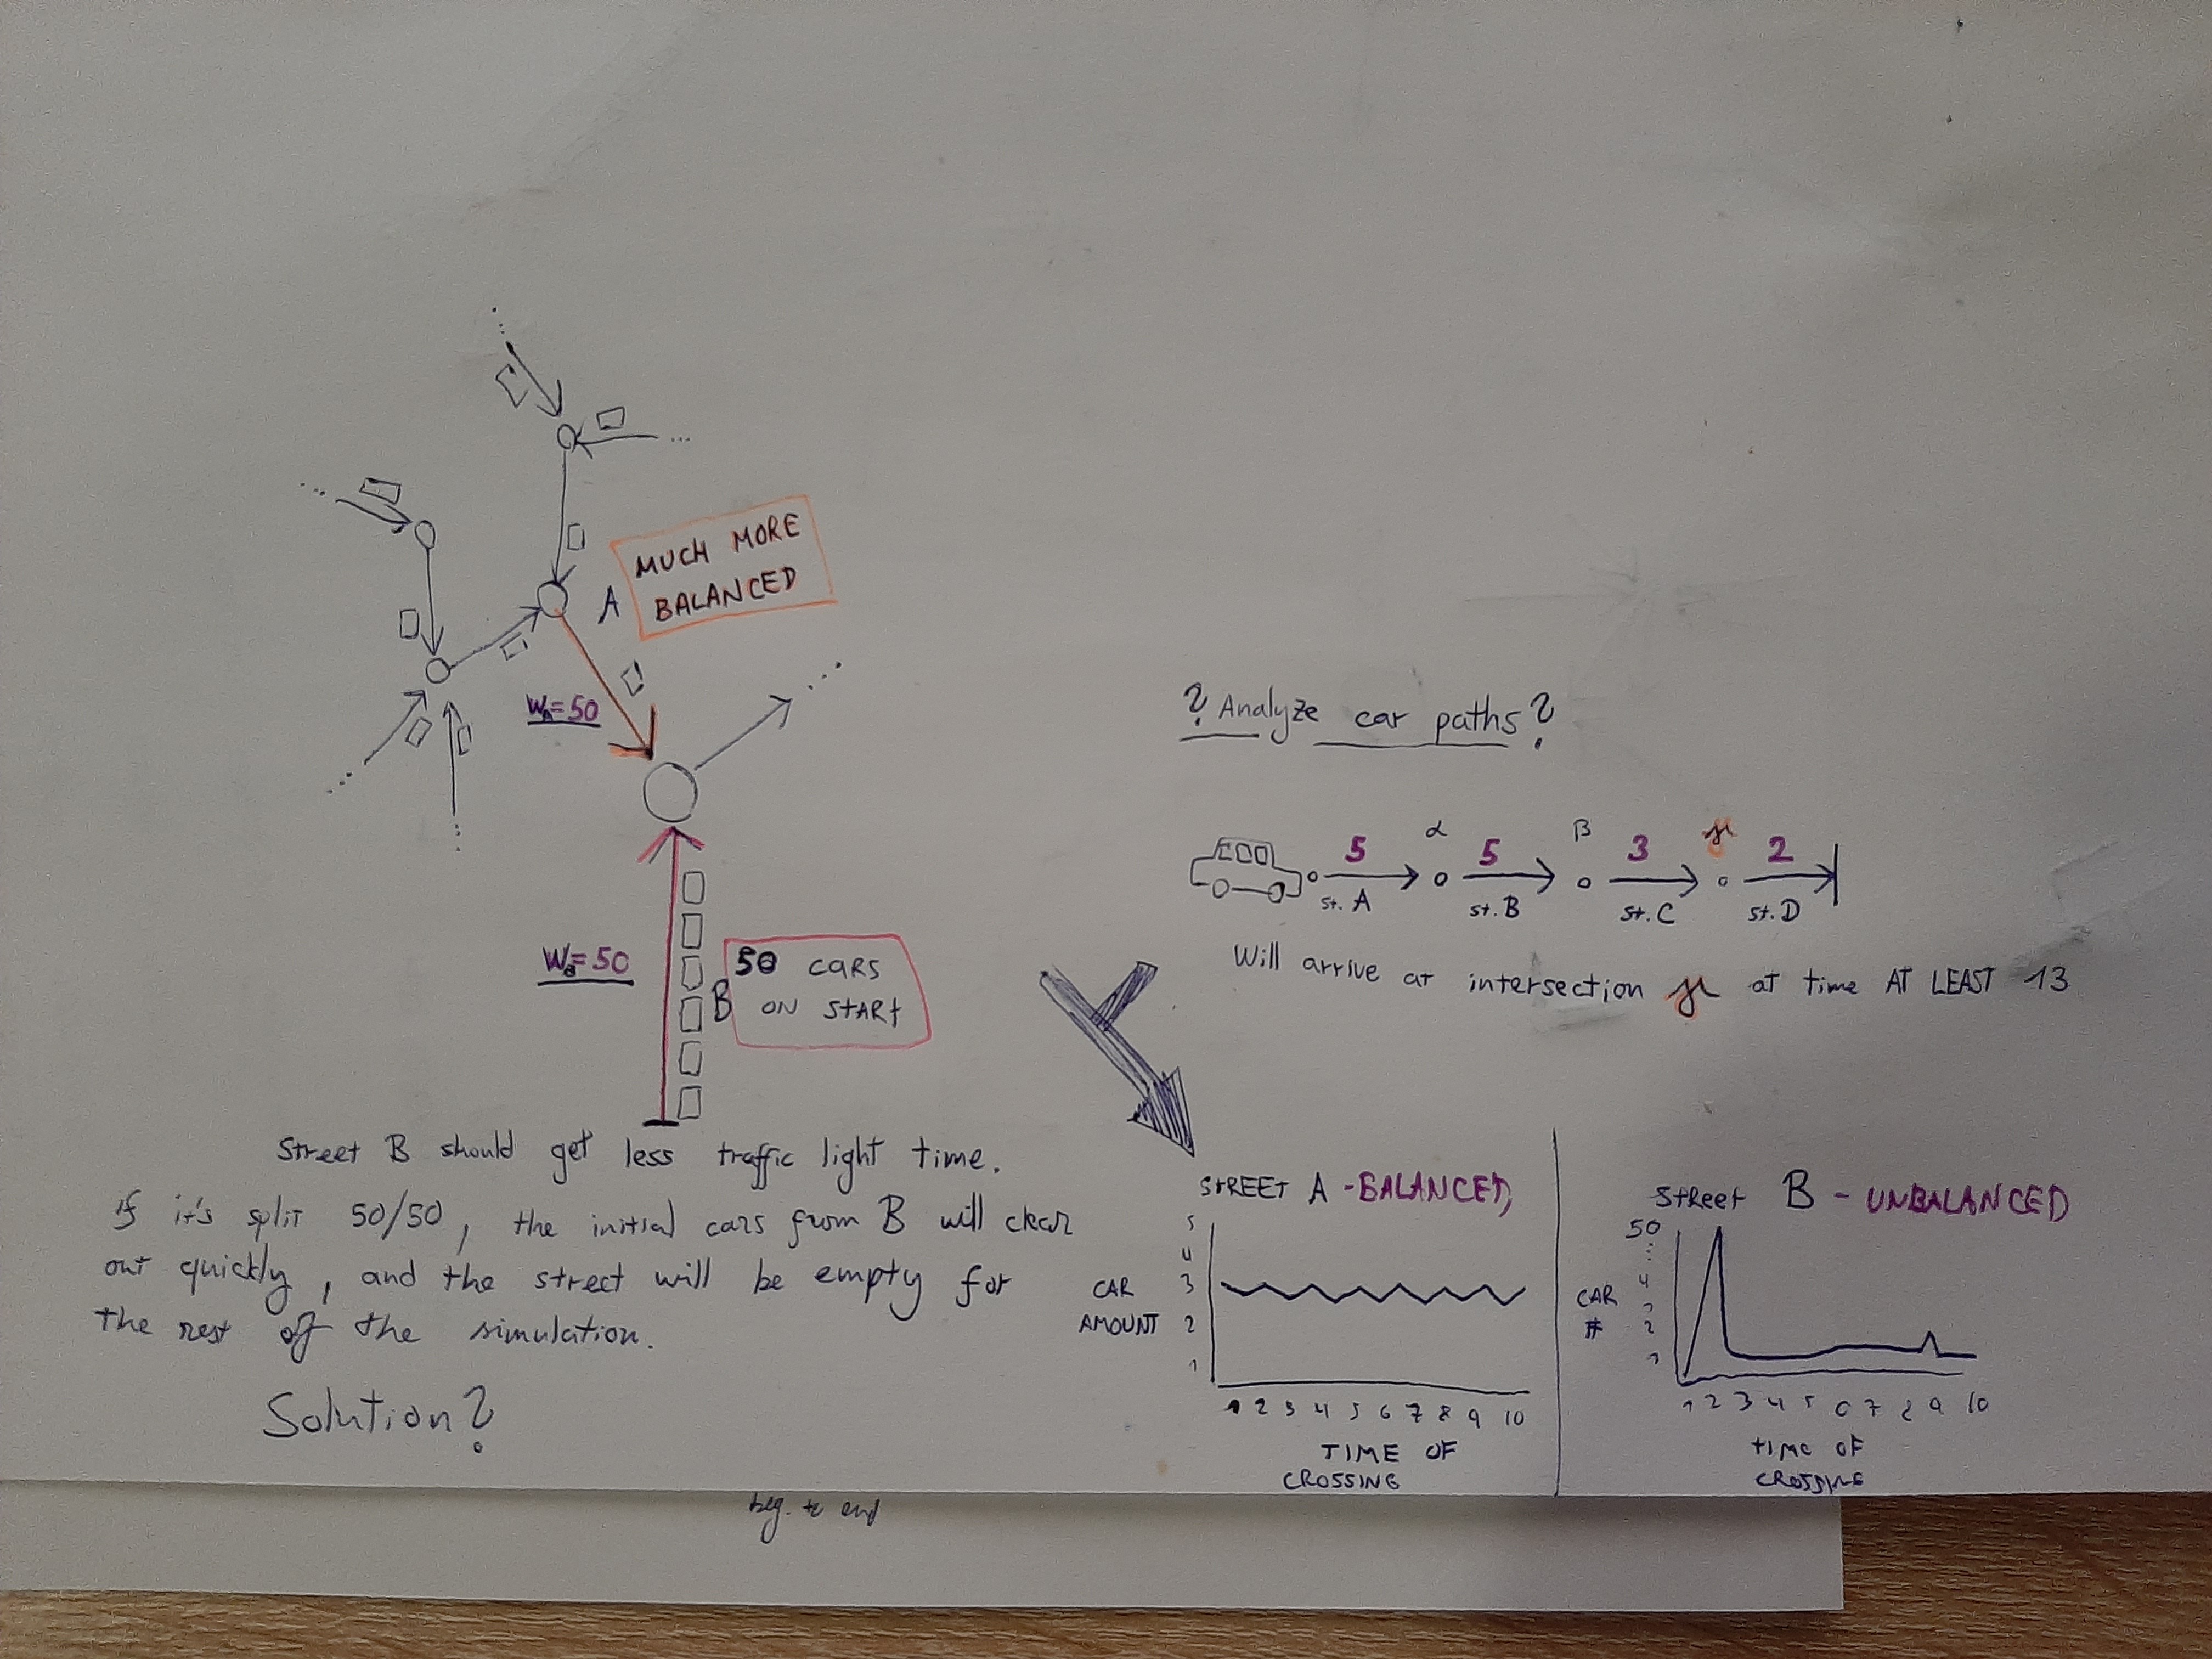 A
MUCH MORE
BALANCED
W_A=50
W_B=50
50 CARS
ON START
B
Street B should get less traffic light time.
If it's split 50/50, the initial cars from B will clear
out quickly, and the street will be empty for
the rest of the simulation.
Solution?
? Analyze car paths?
α β γ
5 5 3 2
st. A st. B st. C st. D
Will arrive at intersection γ at time AT LEAST 13
STREET A - BALANCED
5
4
3
2
1
CAR
AMOUNT
1 2 3 4 5 6 7 8 9 10
TIME OF
CROSSING
STREET B - UNBALANCED
50
⋮
4
3
2
1
CAR
#
1 2 3 4 5 6 7 8 9 10
TIME OF
CROSSING